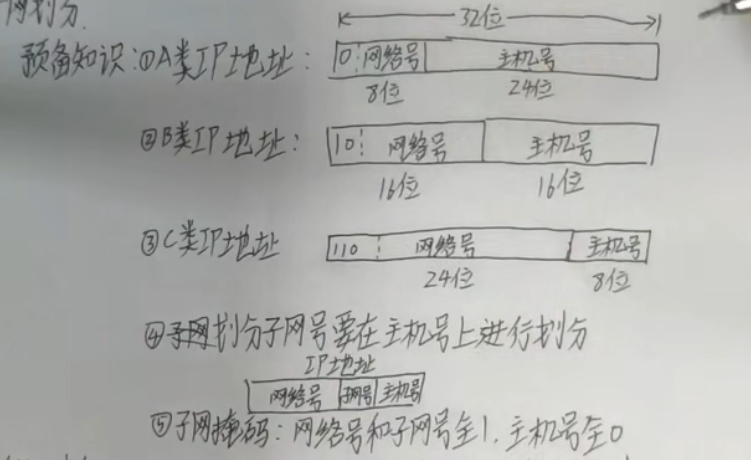 网划分.
32位
预备知识:①A类IP地址: 0 网络号 主机号
8位 24位
②B类IP地址: 10 网络号 主机号
16位 16位
③C类IP地址 110 网络号 主机号
24位 8位
④子网划分子网号要在主机号上进行划分
IP地址
网络号 子网号 主机号
⑤子网掩码:网络号和子网号全1.主机号全0